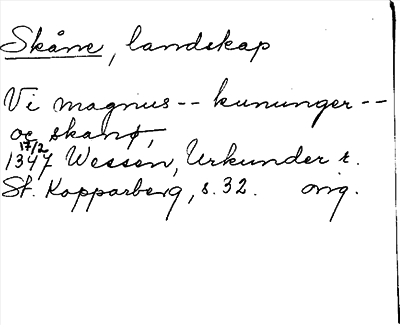 Skåne, landskap
Vi magnus -- kununger --
oc skanø,
17/2
1347 Wessén, Urkunder r.
St. Kopparberg, s. 32. orig.